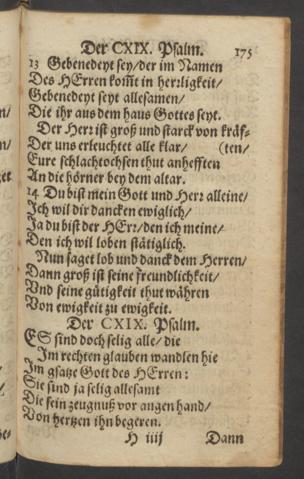 Der CXIX. Psalm. 175
13 Gebenedeyt sey/der im Namen
Des HErren kom̃t in herrligkeit/
Gebenedeyt seyt allesamen/
Die ihr aus dem haus Gottes seyt.
Der Herr ist groß und starck von kräf-
Der uns erleuchtet alle klar/ (ten/
Eure schlachtochsen thut anhefften
An die hörner bey dem altar.
14 Du bist mein Gott und Herr alleine/
Ich wil dir dancken ewiglich/
Ja du bist der HErr/den ich meine/
Den ich wil loben stätiglich.
Nun saget lob und danck dem Herren/
Dann groß ist seine freundlichkeit/
Vnd seine gütigkeit thut währen
Von ewigkeit zu ewigkeit.
Der CXIX. Psalm.
ES sind doch selig alle/ die
Im rechten glauben wandlen hie
Im gsatze Gott des HErren:
Sie sind ja selig allesamt
Die sein zeugnuß vor augen hand/
Von hertzen ihn begeren.
H iiij Dann